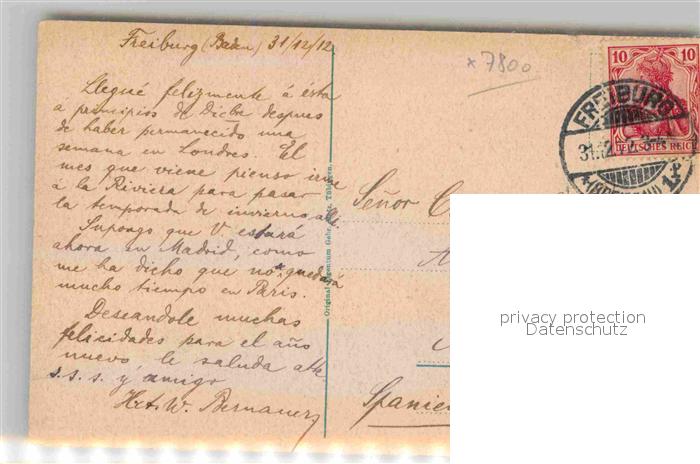 Freiburg (Baden) 31/12/12
* 7800
Llegué felizmente á ésta
á principios de Dicbre despues
de haber permanecido una
semana en Londres. El
mes que viene pienso irme
á la Riviera para pasar
la temporada de invierno allí.
Supongo que V. estará
ahora en Madrid, como
me ha dicho que no quedará
mucho tiempo en Paris.
Deseandole muchas
felicidades para el año
nuevo le saluda atte
s. s. s. y amigo
W. Bernauer
Original Gebr. Tübingen.
10 10
DEUTSCHES REICH
FREIBURG
31.12.12
Señor C
A
Spanien
privacy protection
Datenschutz